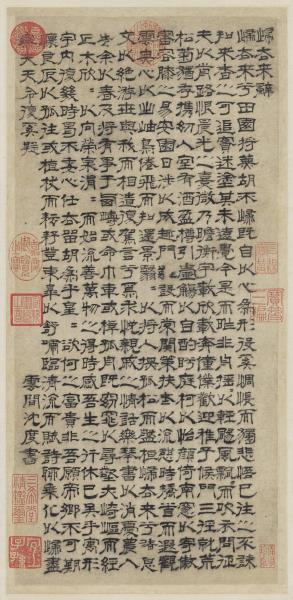 歸去來辭
歸去來兮田園將蕪胡不歸既自以心為形役奚惆悵而獨悲悟已往之不諫
知來者之可追寔迷塗其未遠覺今是而昨非舟搖搖以輕颺風飄飄而吹衣問征
夫以前路恨晨光之熹微乃瞻衡宇載欣載奔僮僕歡迎稚子候門三徑就荒
松菊猶存携幼入室有酒盈樽引壺觴以自酌眄庭柯以怡顏倚南窻以寄傲
審容膝之易安園日涉以成趣門雖設而常關策扶老以流憩時矯首而遐觀
雲無心以出岫鳥倦飛而知還景翳翳以將入撫孤松而盤桓歸去來兮請息
交以絕游世與我而相遺復駕言兮焉求悅親戚之情話樂琴書以消憂農人
告余以春及將有事于西疇或命巾車或棹孤舟既窈窕以尋壑亦崎嶇而經
丘木欣欣以向榮泉涓涓而始流善萬物之得時感吾生之行休已矣乎寓形
宇内復幾時曷不委心任去留胡為乎遑遑欲何之富貴非吾願帝鄉不可期
懷良辰以孤往或植杖而耘耔登東皋以舒嘯臨清流而賦詩聊乘化以歸盡
樂夫天命復奚疑
雲間沈度書
三希堂精鑑璽
宜子孫